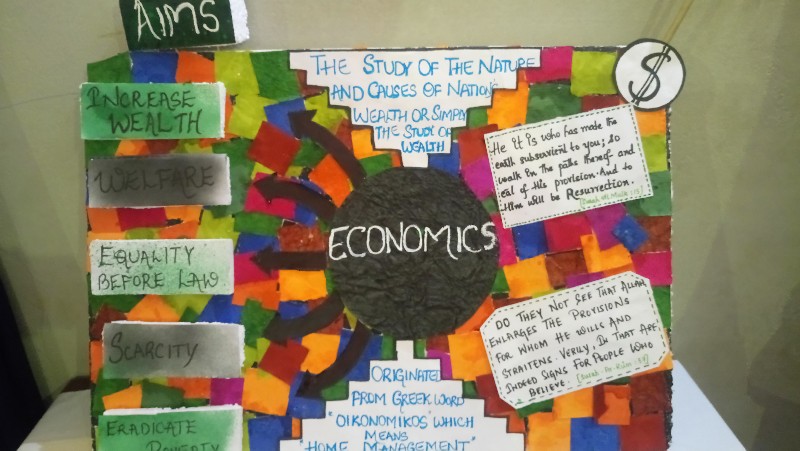 AIMS
THE STUDY OF THE NATURE
AND CAUSES OF NATION'S
WEALTH OR SIMPLY
THE STUDY OF
WEALTH
$
INCREASE
WEALTH
WELFARE
EQUALITY
BEFORE LAW
SCARCITY
ERADICATE
POVERTY
ECONOMICS
He it is who has made the
earth subservient to you; so
walk in the paths thereof and
eat of His provision. And to
Him will be Resurrection.
DO THEY NOT SEE THAT ALLAH
ENLARGES THE PROVISIONS
FOR WHOM HE WILLS AND
STRAITENS. VERILY, IN THAT ARE
INDEED SIGNS FOR PEOPLE WHO
BELIEVE.
ORIGINATED
FROM GREEK WORD
"OIKONOMIKOS" WHICH
MEANS
"HOME MANAGEMENT"